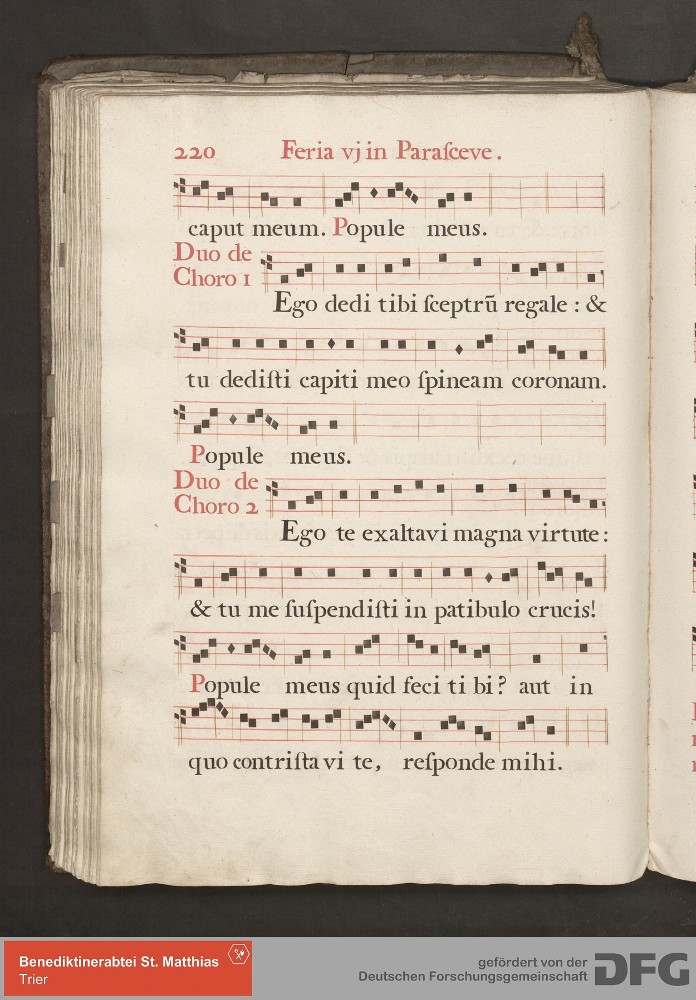 220 Feria vj in Paraſceve.
caput meum. Popule meus.
Duo de
Choro 1
Ego dedi tibi ſceptrū regale : &
tu dediſti capiti meo ſpineam coronam.
Popule meus.
Duo de
Choro 2
Ego te exaltavi magna virtute:
& tu me ſuſpendiſti in patibulo crucis!
Popule meus quid feci ti bi? aut in
quo contriſta vi te, reſponde mihi.
Benediktinerabtei St. Matthias
Trier
gefördert von der
Deutschen Forschungsgemeinschaft
DFG